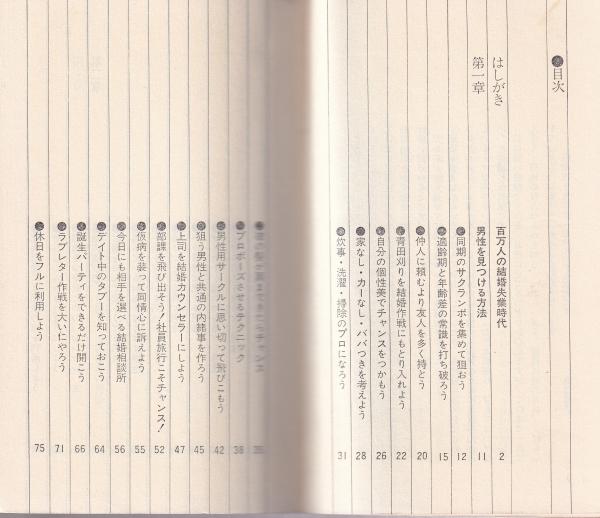 ●目次
はしがき 百万人の結婚失業時代 2
第一章 男性を見つける方法 11
●同期のサクランボを集めて狙おう 12
●適齢期と年齢差の常識を打ち破ろう 15
●仲人に頼むより友人を多く持とう 20
●青田刈りを結婚作戦にもとり入れよう 22
●自分の個性美でチャンスをつかもう 26
●家なし・カーなし・ババつきを考えよう 28
●炊事・洗濯・掃除のプロになろう 31
●プロポーズさせるテクニック 38
●男性用サークルに思い切って飛びこもう 42
●狙う男性と共通の内緒事を作ろう 45
●上司を結婚カウンセラーにしよう 47
●部課を飛び出そう!社員旅行こそチャンス! 52
●仮病を装って同情心に訴えよう 55
●今日にも相手を選べる結婚相談所 56
●デイト中のタブーを知っておこう 64
●誕生パーティをできるだけ開こう 66
●ラブレター作戦を大いにやろう 71
●休日をフルに利用しよう 75